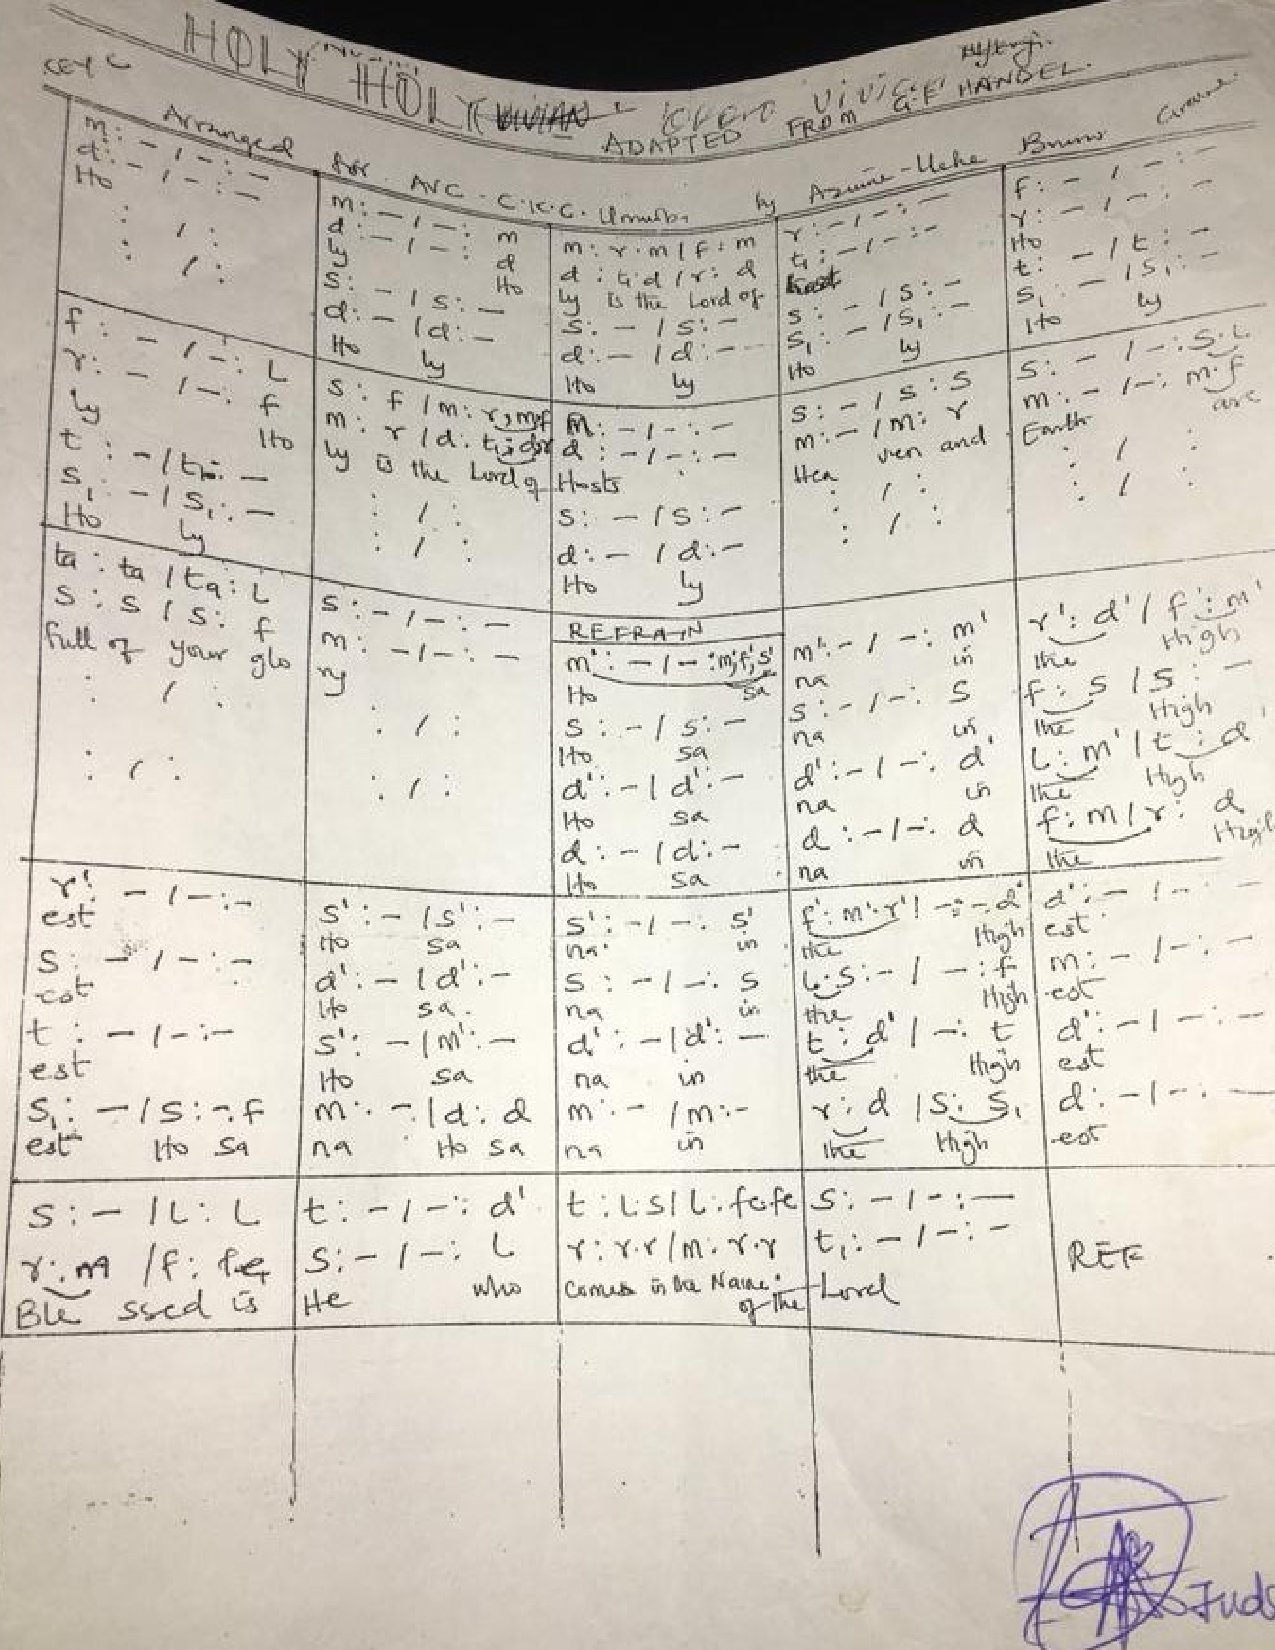 HOLY HOLY
KEY C
ADAPTED FROM G.F HANDEL.
Arranged for AVC - C.K.C. by Azuine-Uche Bruno
m: - / - : -
d: - / - : -
Ho
: / :
: / :
m: - / - : m
d: - / - : d
ly Ho
s: - / s: -
d: - / d: -
Ho ly
m: r . m / f : m
d : t₁ d / r : d
ly is the Lord of
s: - / s: -
d: - / d: -
Ho ly
r: - / - : -
t₁: - / - : -
s: - / s: -
s₁: - / s₁: -
Ho ly
f: - / - : -
r: - / - : -
Ho
t: - / t : -
s₁: - / s₁: -
Ho ly
f: - / - : L
r: - / - : f
ly Ho
t : - / t : -
s₁: - / s₁: -
Ho ly
s: f / m: r, m, f
m: r / d. t₁ : d r
ly is the Lord of
: / :
: / :
m: - / - : -
d: - / - : -
Hosts
s: - / s: -
d: - / d: -
Ho ly
s: - / s : s
m: - / m: r
Hea ven and
: / :
: / :
s: - / - : s . L
m: - / - : m . f
Earth are
: / :
: / :
ta : ta / ta : L
s : s / s : f
full of your glo
: / :
: / :
s: - / - : -
m: - / - : -
ry
: / :
: / :
REFRAIN
m': - / - : m', f', s'
Ho sa
s: - / s: -
Ho sa
d': - / d': -
Ho sa
d: - / d: -
Ho sa
m': - / - : m'
na in
s: - / - : s
na in
d': - / - : d'
na in
d : - / - : d
na in
r' : d' / f' : m'
the High
f : s / s : -
the High
L : m' / t : d'
the High
f : m / r : d
the High
r': - / - : -
est
s: - / - : -
est
t : - / - : -
est
s₁: - / s : - . f
est Ho sa
s': - / s': -
Ho sa
d': - / d': -
Ho sa.
s': - / m': -
Ho sa
m: - / d : d
na Ho sa
s': - / - : s'
na in
s : - / - : s
na in
d' : - / d' : -
na in
m: - / m: -
na in
f' : m' . r' / - : - . d'
the High
L . s : - / - : f
the High
t : d' / - : t
the High
r : d / s : s₁
the High
d': - / - : -
est
m: - / - : -
est
d': - / - : -
est
d: - / - : -
est
s: - / L : L
r : m / f : fe
Ble ssed is
t: - / - : d'
s: - / - : L
He who
t : L . s / L : fe . fe
r : r . r / m . r . r
comes in the Name of the
s: - / - : -
t₁: - / - : -
Lord
REF